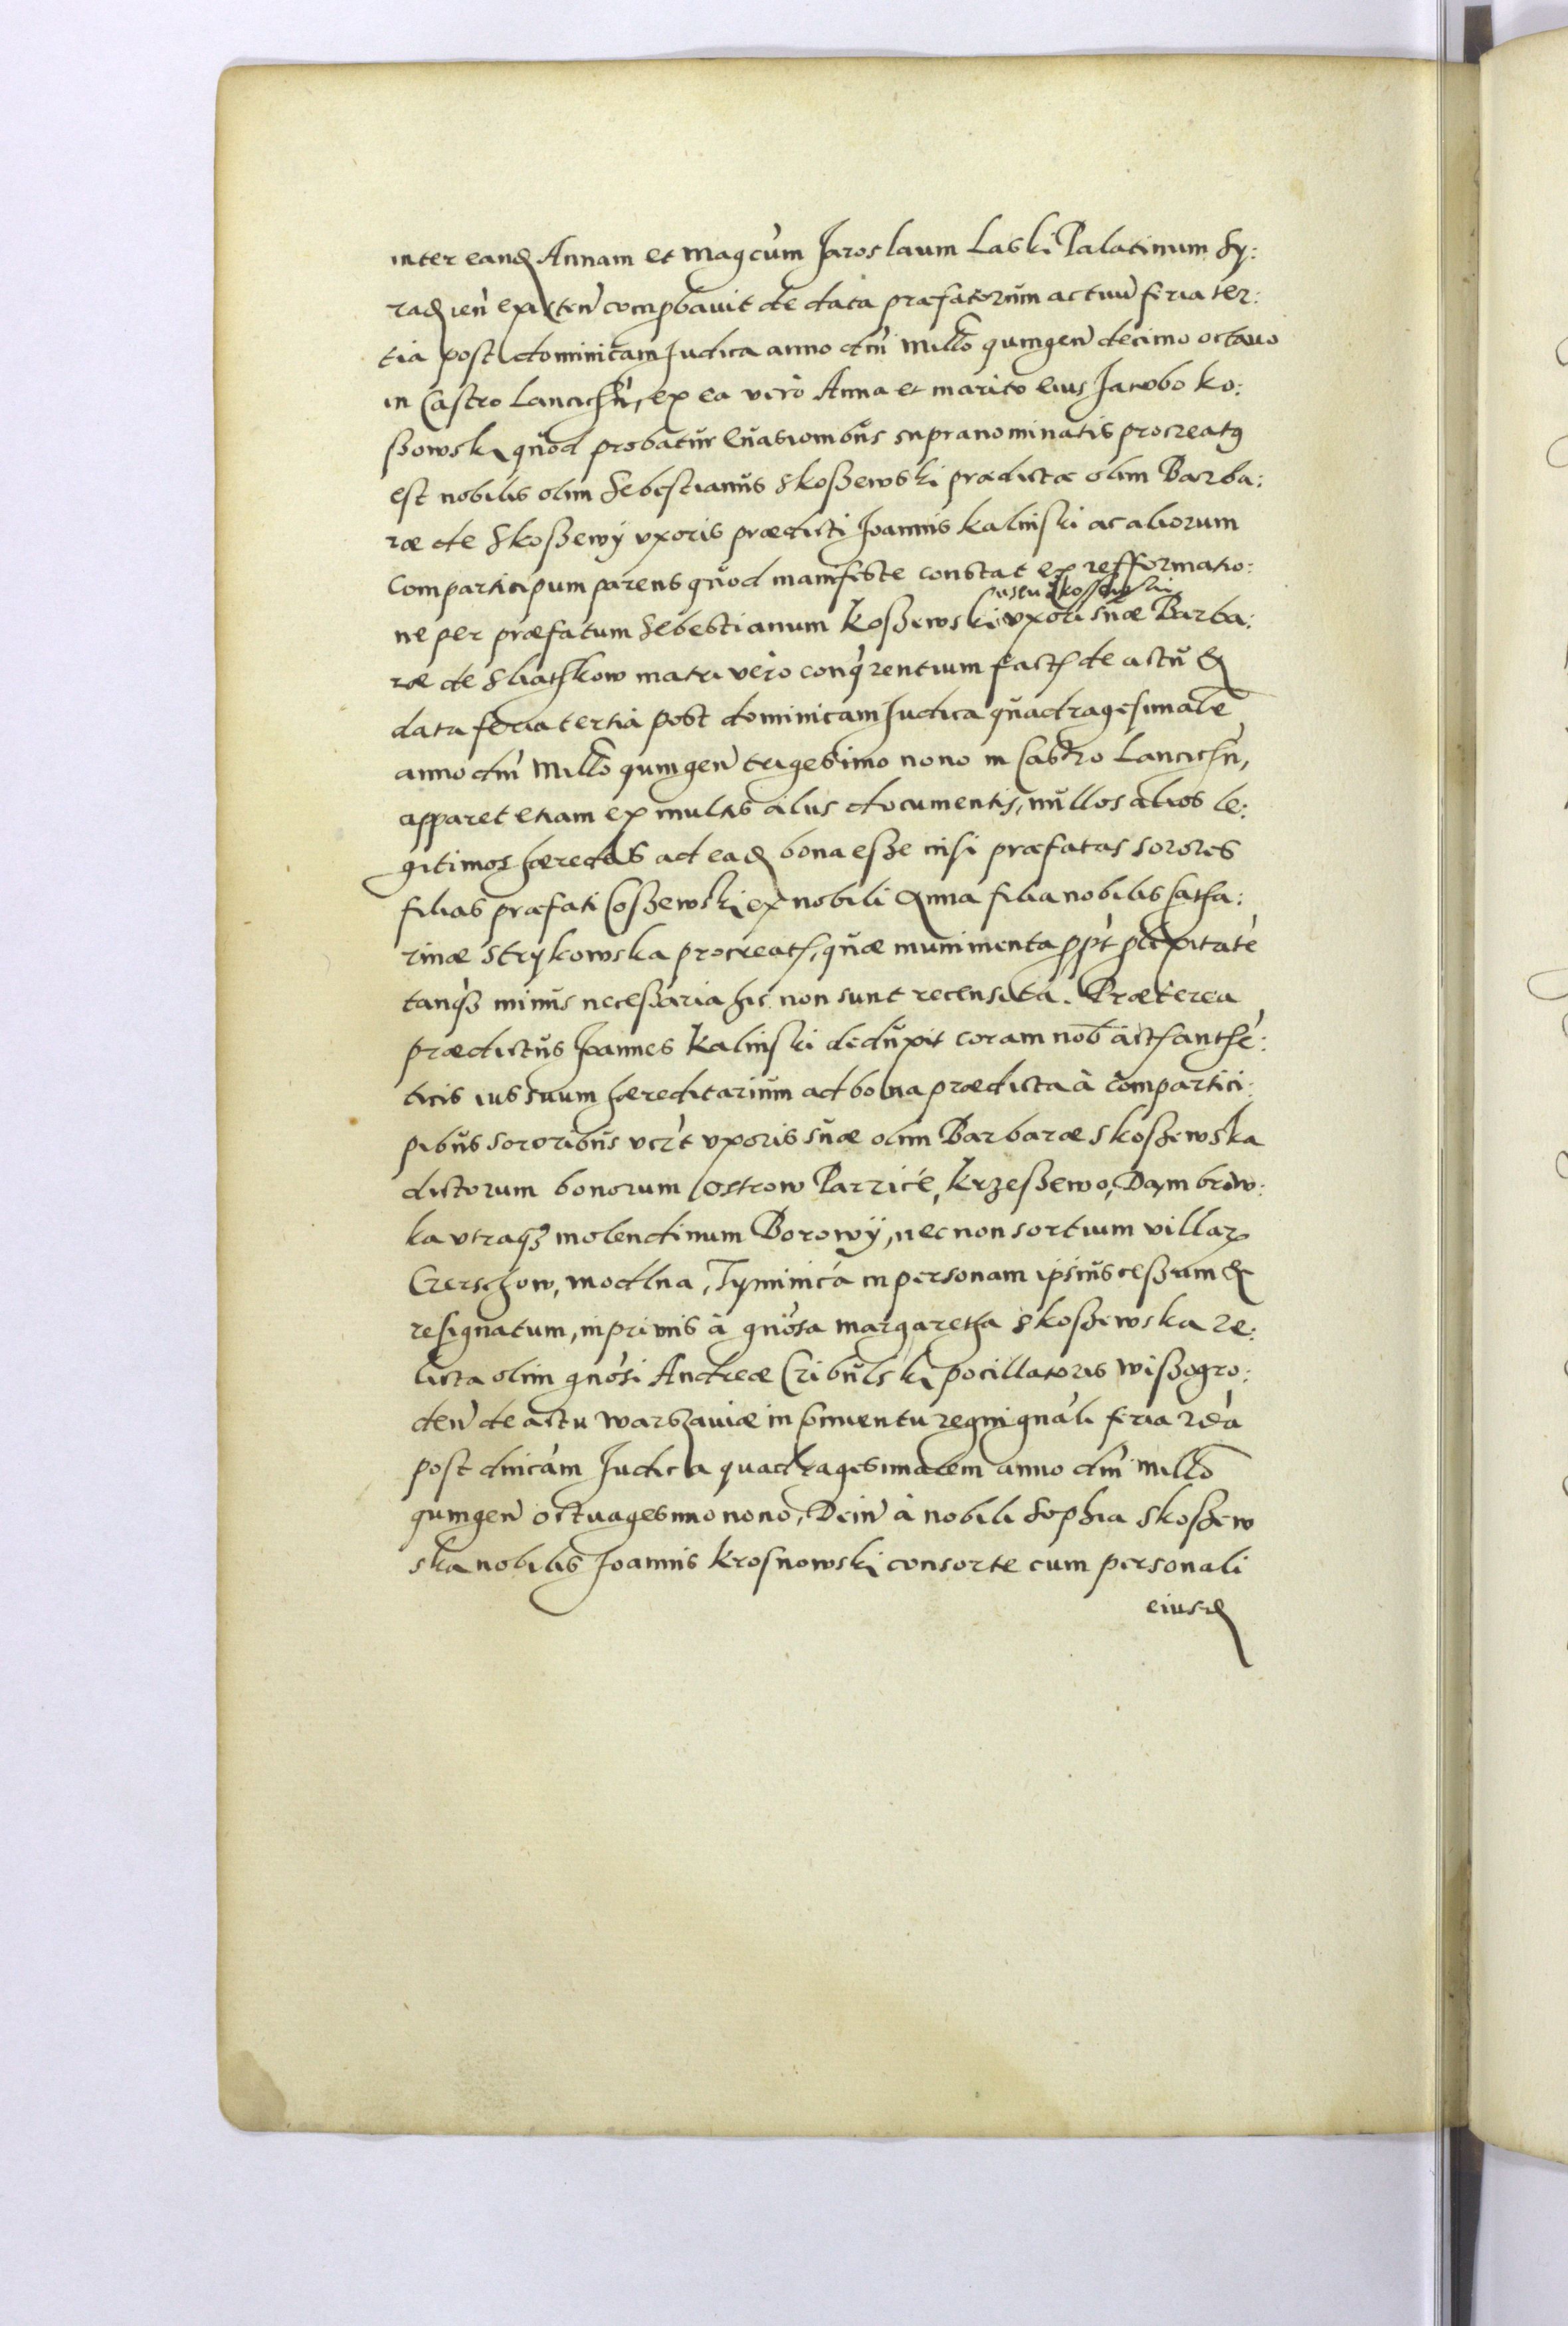 inter eand Annam et Magcum Jaroslaum Laski Palatinum Sy:
radien existen compbauit de data præfatorum actuum feria ter:
tia post dominicam Judica anno dni Millo quingen decimo octauo
in Castro Lancichn, ex ea vero Anna et marito eius Jacobo Ko:
ßowski quod probatur euasionibus supranominatis procreatg
est nobilis olim Sebestianus Skoßewski prædictæ olim Barba:
ræ de Skoßewÿ vxoris prædicti Joannis Kalinski ac aliorum
Comparticipum parens quod manifeste constat ex refformatio:
ne per præfatum Sebestianum Koßewski vxori suæ Barba:
ræ de Sliathkow matri vero conqrentium facth de actu &
data feria tertia post dominicam Judica quadragesimale
anno dni Millo quingen trigesimo nono in Castro Lancichn,
apparet etiam ex multis alijs documentis, nullos alios le:
gitimos hæredes ad ead bona eße nisi præfatas sorores
filias præfati Coßewski ex nobili Anna filia nobilis Catha:
rinæ Strykowska procreath, quæ munimenta ppt plixitate
tanq3 minus neceßaria hic non sunt recensita. Præterea
prædictus Joannes Kalinski deduxit coram nob acth authe:
ticis ius suum hæreditarium ad bona prædicta à compartici:
pibus sororibus vert vxoris suæ olim Barbaræ Skoßewska
dictorum bonorum Ostrow Parzice, Krzeßewo, Dambrow:
ka vtraq3 molendinum Borowÿ, nec non sortium villar
Czerschow, Modlna, Tyminica in personam ipsius ceßum &
resignatum, inprimis à gnosa Margaretha Skoßewska re:
licta olim gnosi Andreæ Cribulski pocillatoris Wißogro:
den de actu Warßauiæ in conuentu regni gnali feria 2da
post dnicam Judica quadragesimalem anno dni Millo
quingen octuagesimo nono, Dein à nobili Sophia Skoßew
ska nobilis Joannis Krosnowski consorte cum personali
eiusd